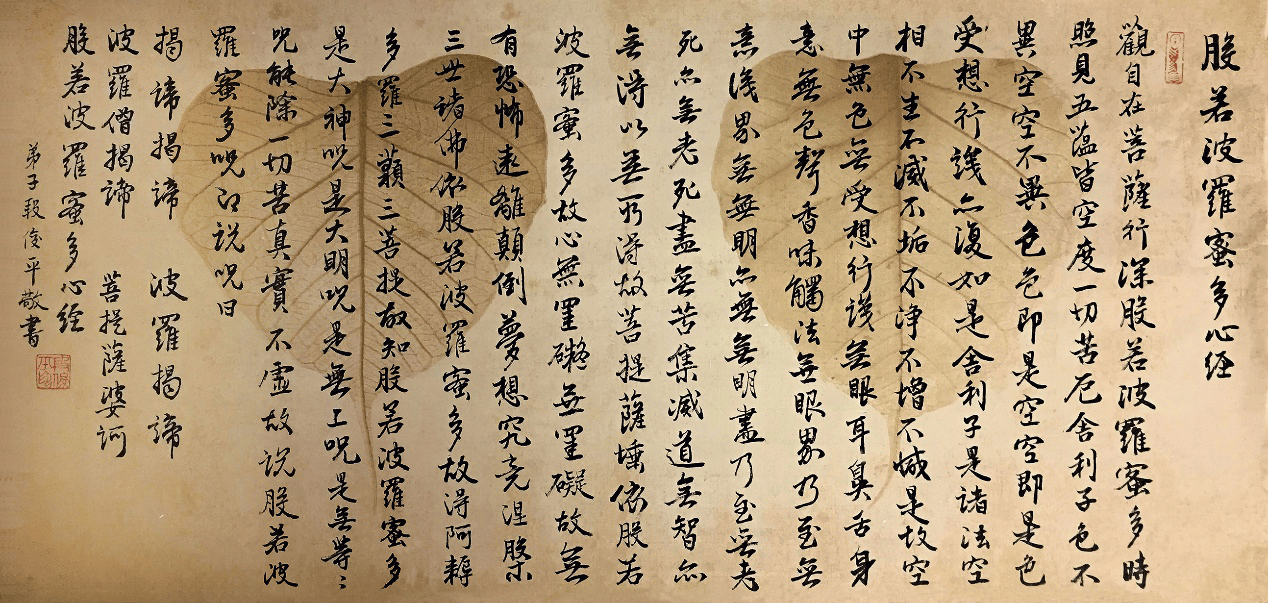 般若波羅蜜多心经
觀自在菩薩行深般若波羅蜜多時
照見五蕴皆空度一切苦厄舍利子色不
異空空不異色色即是空空即是色
受想行識亦復如是舍利子是諸法空
相不生不滅不垢不浄不增不减是故空
中無色無受想行識無眼耳鼻舌身
意無色聲香味觸法無眼界乃至無
意識界無無明亦無無明盡乃至無老
死亦無老死盡無苦集滅道無智亦
無得以無所得故菩提薩埵依般若
波羅蜜多故心無罣礙無罣礙故無
有恐怖遠離顛倒夢想究竟涅槃
三世諸佛依般若波羅蜜多故得阿耨
多羅三藐三菩提故知般若波羅蜜多
是大神呪是大明呪是無上呪是無等〻
呪能除一切苦真實不虛故説般若波
羅蜜多呪即説呪曰
揭諦揭諦 波羅揭諦
波羅僧揭諦 菩提薩婆訶
般若波羅蜜多心经
弟子段俊平敬書